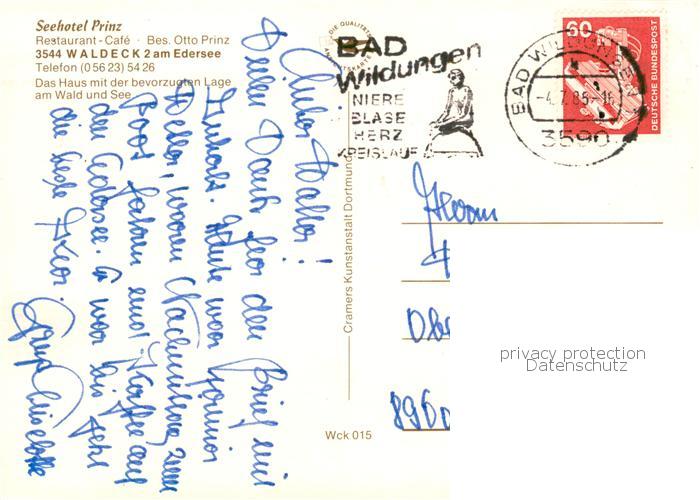 Seehotel Prinz
Restaurant-Café · Bes. Otto Prinz
3544 WALDECK 2 am Edersee
Telefon (0 56 23) 54 26
Das Haus mit der bevorzugten Lage
am Wald und See
Lieber Walter!
Vielen Dank für den Brief mit
Inhalt. Heute war
waren Nachmittag zum
Boot fahren und Kaffee auf
den Edersee. Es war bis jetzt
die
Gruß Liselotte
Cramers Kunstanstalt Dortmund
Wck 015
BAD
Wildungen
NIERE
BLASE
HERZ
KREISLAUF
BAD WILDUNGEN
-4.7.85-16
3590
60
DEUTSCHE BUNDESPOST
Herrn
896
privacy protection
Datenschutz